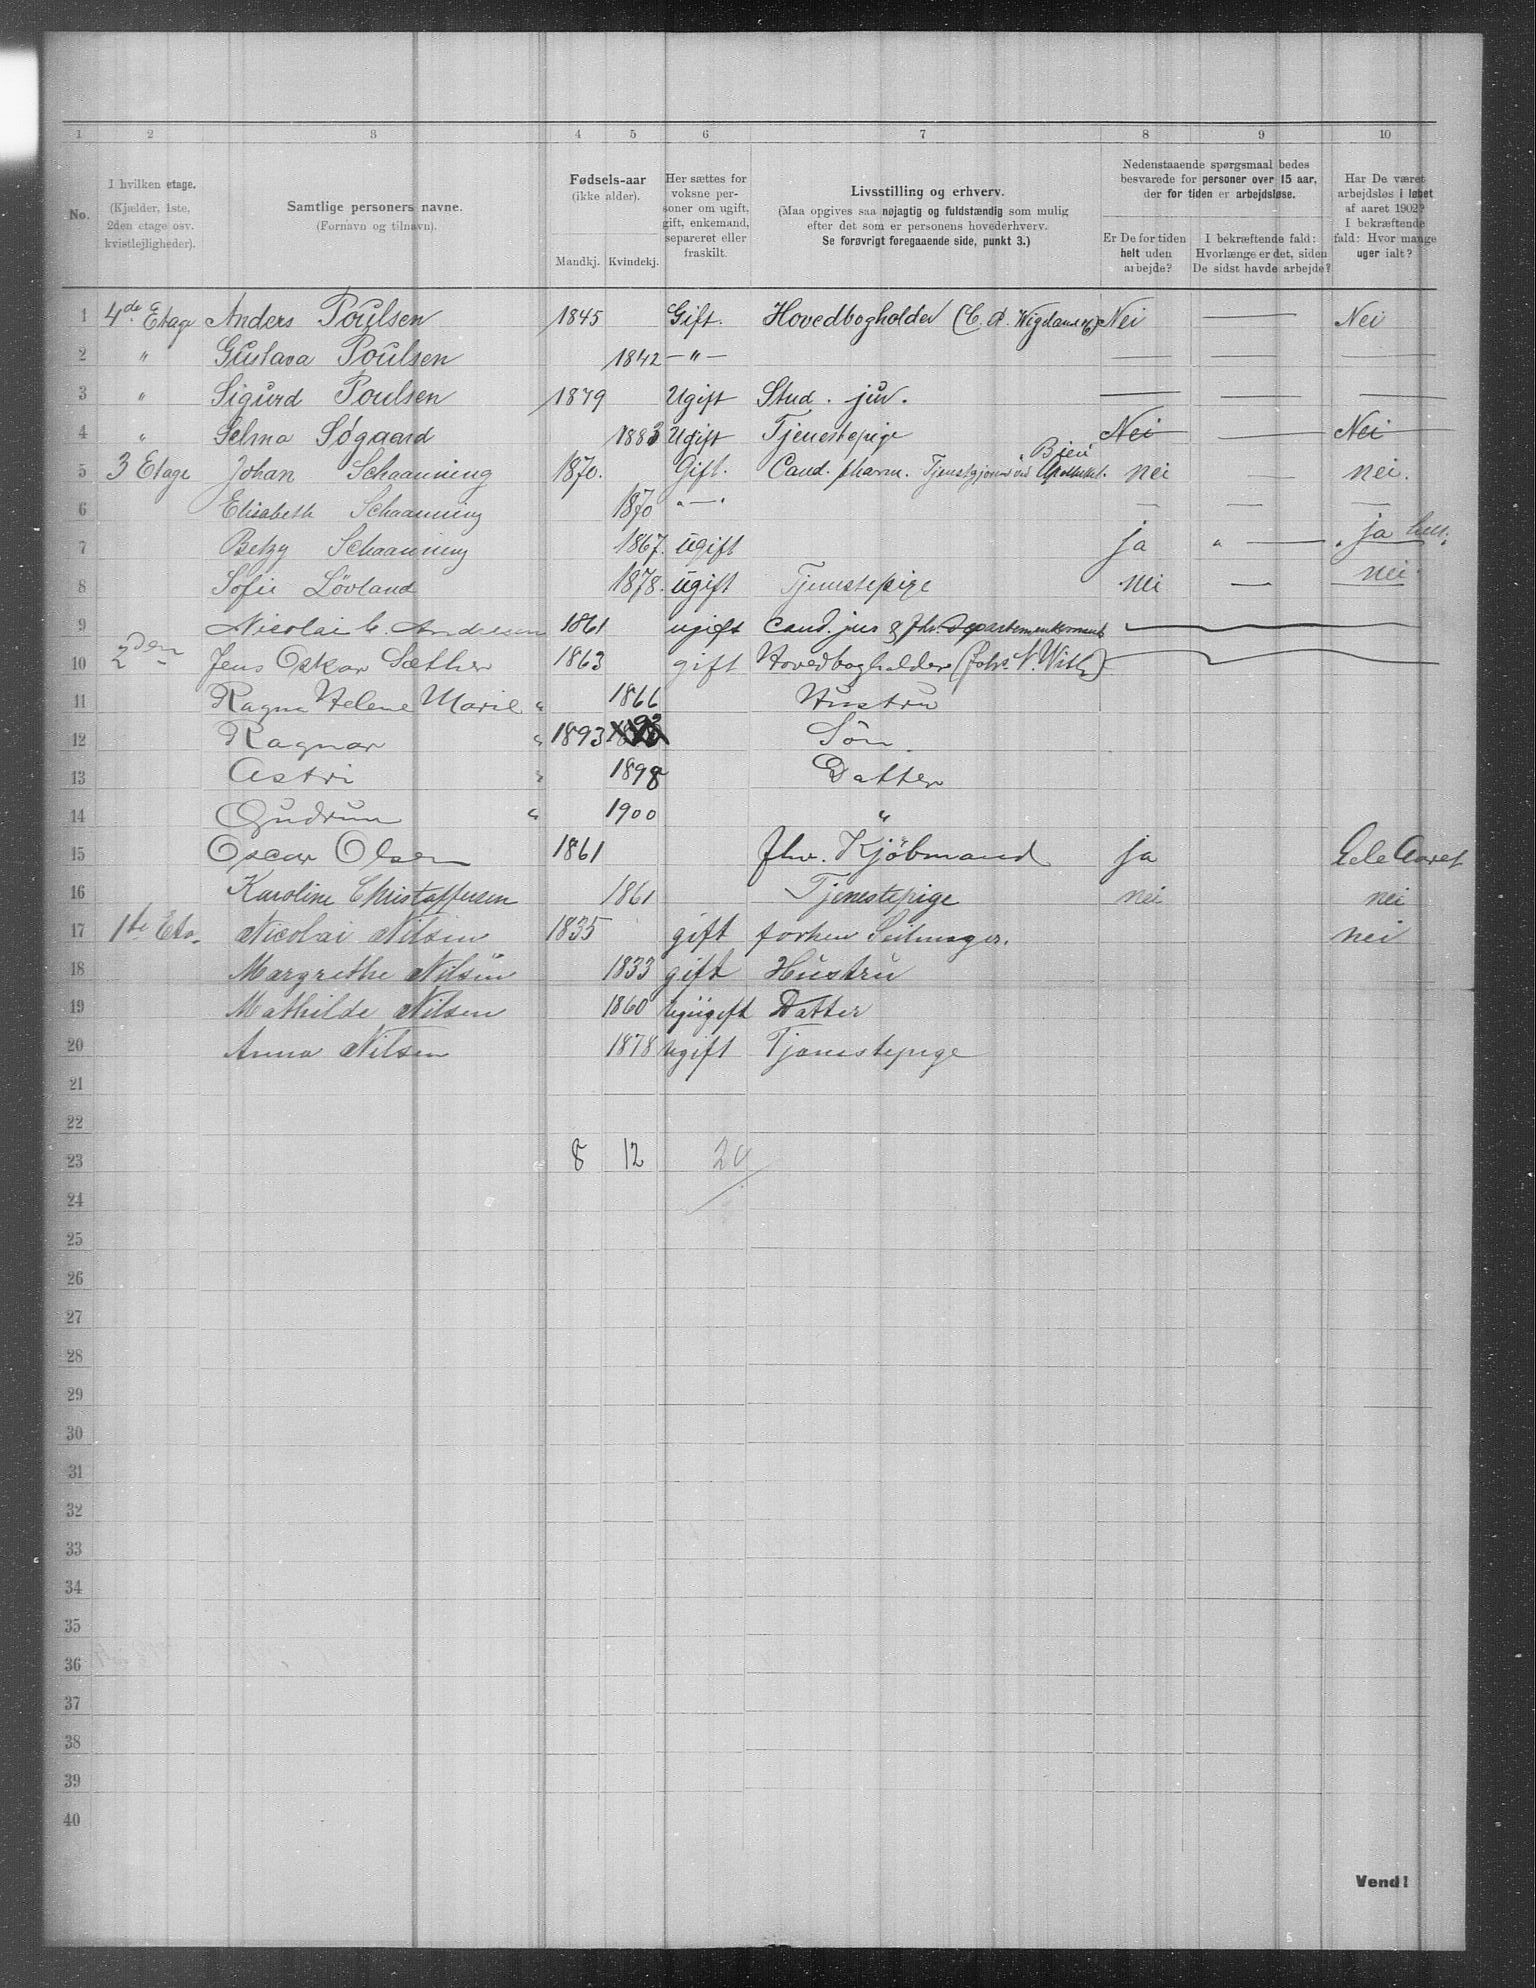 1 2 3 4 5 6 7 8 9 10
No.
I hvilken etage.
(Kjælder, 1ste,
2den etage osv.
kvistlejligheder).
Samtlige personers navne.
(Fornavn og tilnavn).
Fødsels-aar
(ikke alder).
Mandkj. Kvindekj.
Her sættes for
voksne per-
soner om ugift,
gift, enkemand,
separeret eller
fraskilt.
Livsstilling og erhverv.
(Maa opgives saa nøjagtig og fuldstændig som mulig
efter det som er personens hovederhverv.
Se forøvrigt foregaaende side, punkt 3.)
Nedenstaaende spørgsmaal bedes
besvarede for personer over 15 aar,
der for tiden er arbejdsløse.
Er De for tiden
helt uden
arbejde?
I bekræftende fald:
Hvorlænge er det, siden
De sidst havde arbejde?
Har De været
arbejdsløs i løbet
af aaret 1902?
I bekræftende
fald: Hvor mange
uger ialt?
1 4de Etage Anders Poulsen 1845 Gift. Hovedbogholder (C. A. Nei — Nei
2 " Gustava Poulsen 1842 —"— — — —
3 " Sigurd Poulsen 1879 Ugift Stud. jur. — — —
4 " Selma Søgaard 1883 Ugift Tjenestepige Nei — Nei
5 3 Etage Johan Schaanning 1870. Gift. Cand. pharm. Apotheket. nei — nei.
6 Elisabeth Schaanning 1870 "—" — — —
7 Betzy Schaanning 1867. ugift ja " — " ja
8 Sofie Lövland 1878. ugift Tjenestepige nei — nei
9 Nicolai C. Andresen 1861 ugift Cand. jur & fhv.
10 2den Jens Oskar Sæther 1863 gift Hovedbogholder (Johs N. With)
11 Ragna Helene Marie " 1866 Hustru
12 Ragnar " 1893 Sön
13 Astri " 1898 Datter
14 Gudrun " 1900 "
15 Oscar Olsen 1861 fhv. Kjöbmand ja Hele Aaret
16 Karoline Christoffersen 1861 Tjenestepige nei nei
17 1ste Eta. Nicolai Nilsen 1835 gift forhen Seilmager. nei
18 Margrethe Nilsen 1833 gift Hustru
19 Mathilde Nilsen 1860 Datter
20 Anna Nilsen 1878 ugift Tjenestepige
21
22
23 8 12 20
24
25
26
27
28
29
30
31
32
33
34
35
36
37
38
39
40
Vend!